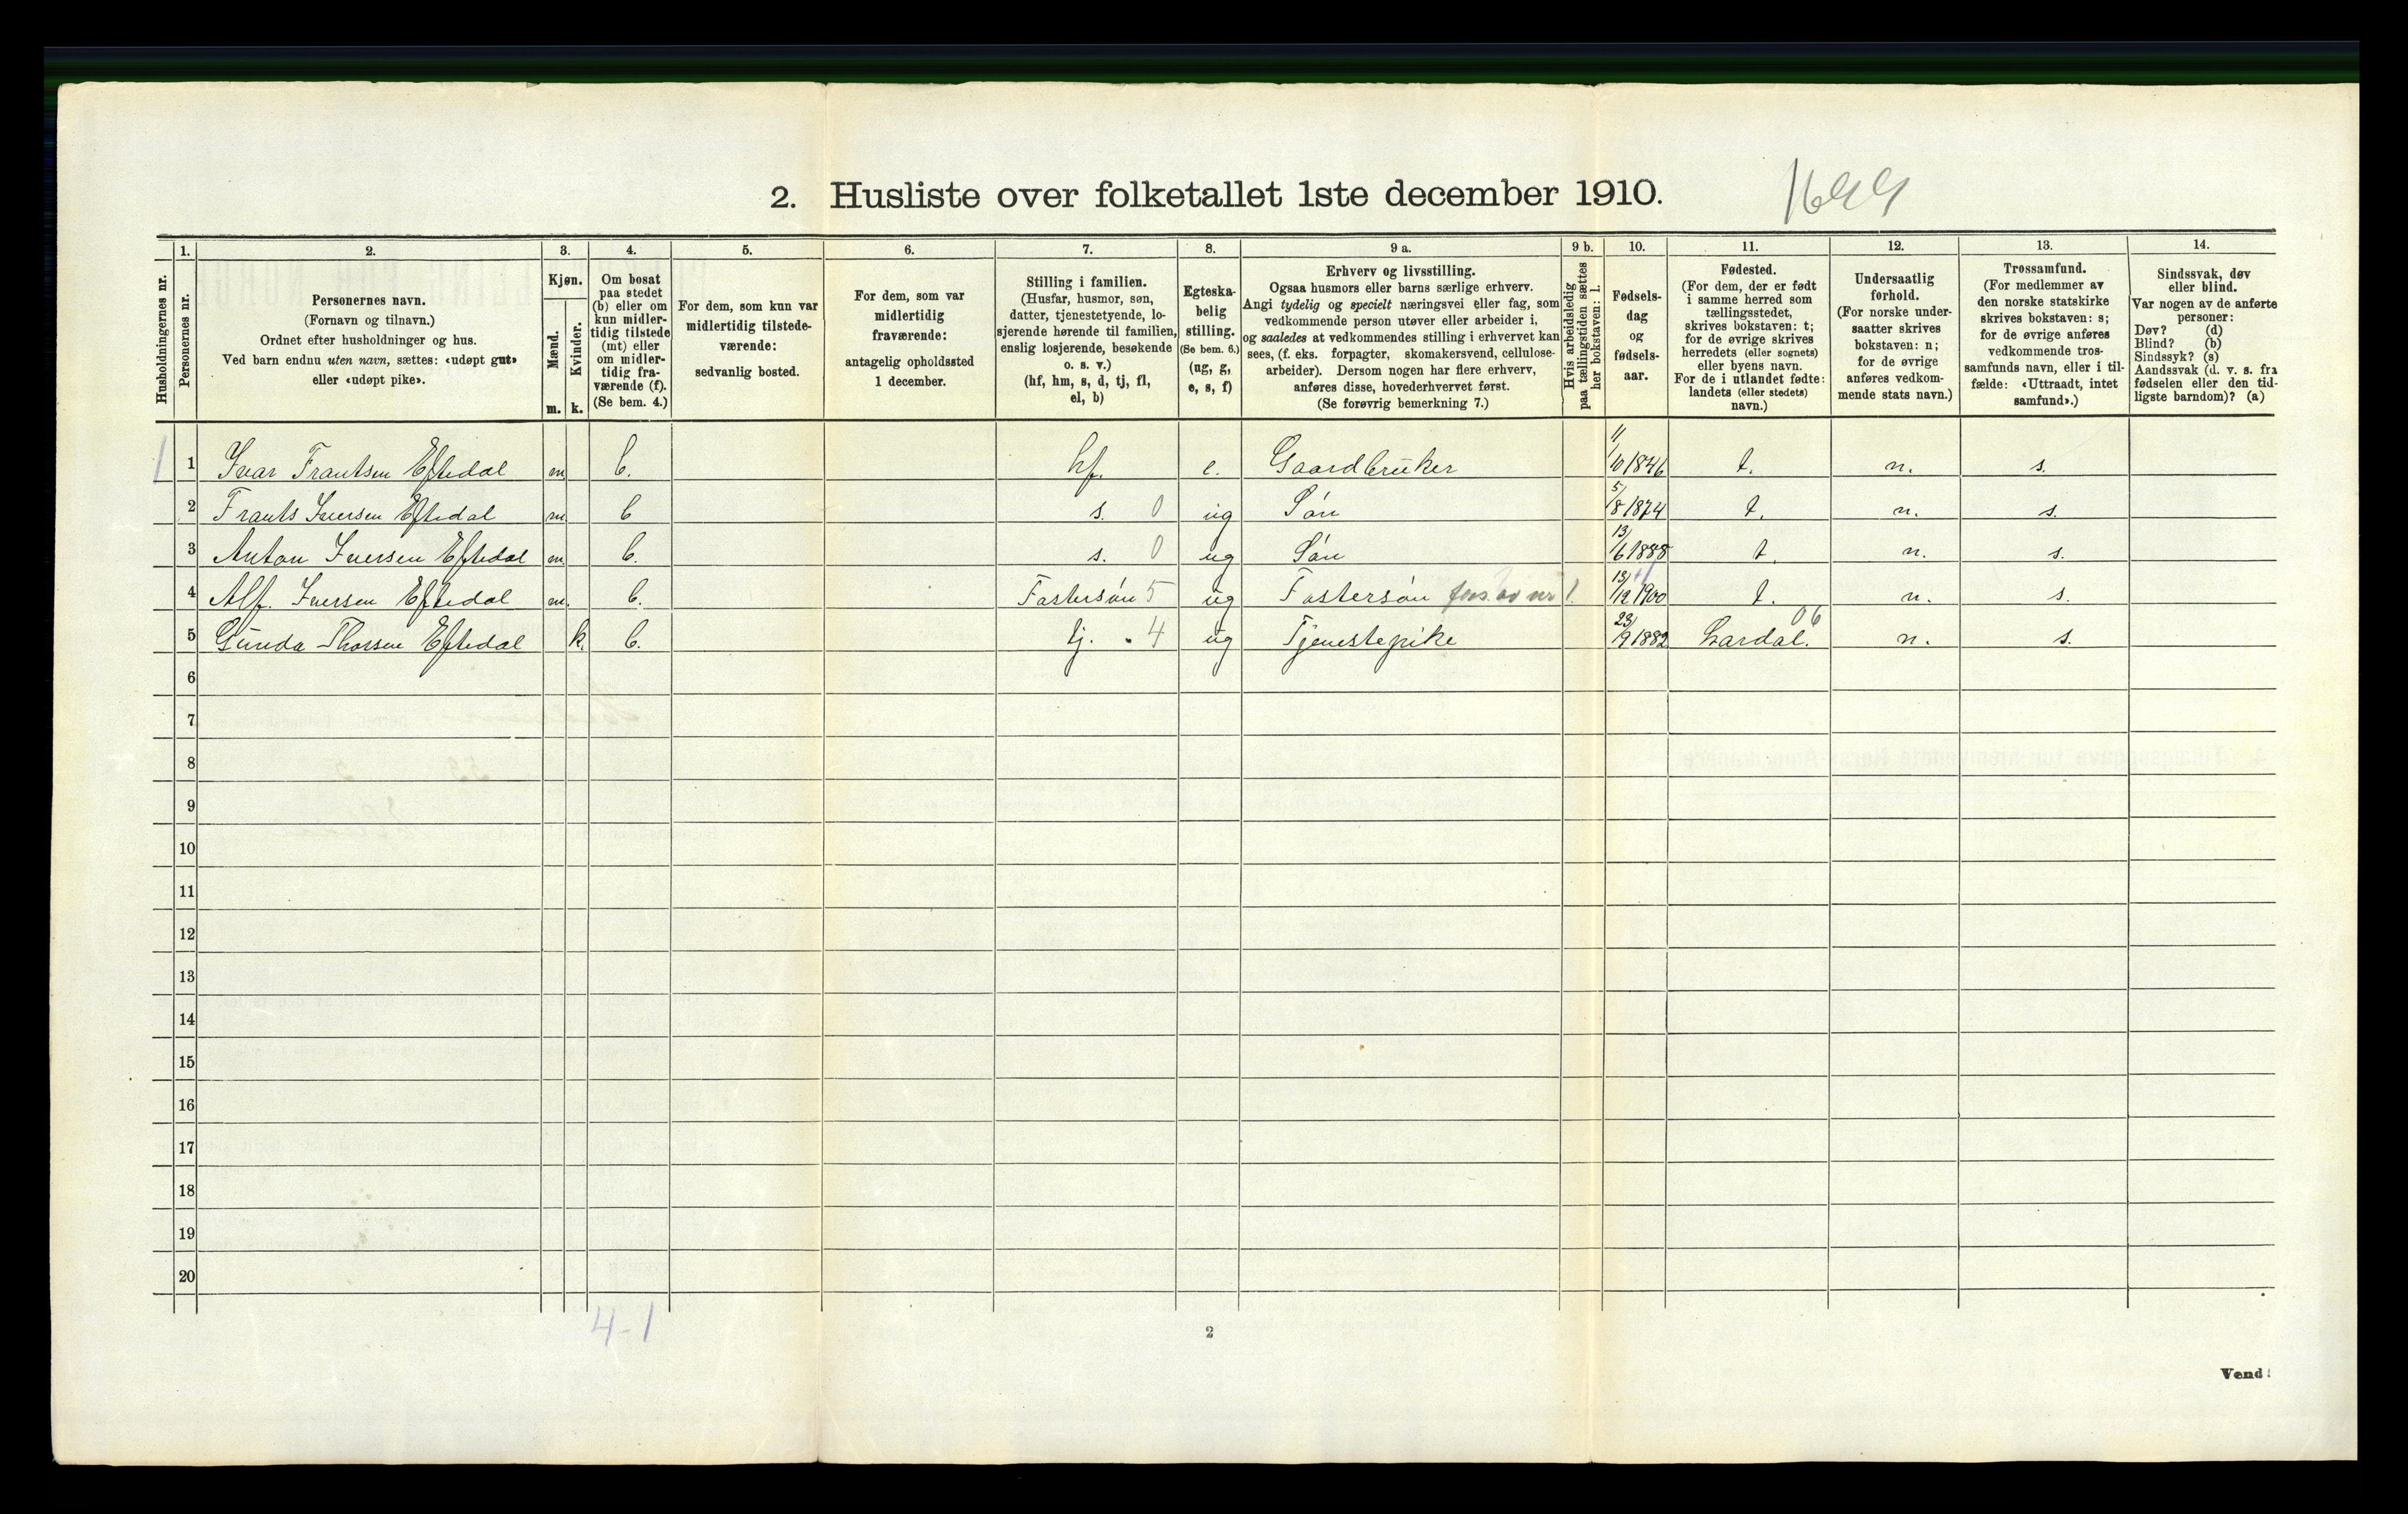 2. Husliste over folketallet 1ste december 1910.
1699
Husholdningernes nr.
1.
Personernes nr.
2.
Personernes navn.
(Fornavn og tilnavn.)
Ordnet efter husholdninger og hus.
Ved barn endnu uten navn, sættes: «udøpt gut»
eller «udøpt pike».
3.
Kjøn.
Mænd.
Kvinder.
m. k.
4.
Om bosat
paa stedet
(b) eller om
kun midler-
tidig tilstede
(mt) eller
om midler-
tidig fra-
værende (f).
(Se bem. 4.)
5.
For dem, som kun var
midlertidig tilstede-
værende:
sedvanlig bosted.
6.
For dem, som var
midlertidig
fraværende:
antagelig opholdssted
1 december.
7.
Stilling i familien.
(Husfar, husmor, søn,
datter, tjenestetyende, lo-
sjerende hørende til familien,
enslig losjerende, besøkende
o. s. v.)
(hf, hm, s, d, tj, fl,
el, b)
8.
Egteska-
belig
stilling.
(Se bem. 6.)
(ug, g,
e, s, f)
9 a.
Erhverv og livsstilling.
Ogsaa husmors eller barns særlige erhverv.
Angi tydelig og specielt næringsvei eller fag, som
vedkommende person utøver eller arbeider i,
og saaledes at vedkommendes stilling i erhvervet kan
sees, (f. eks. forpagter, skomakersvend, cellulose-
arbeider). Dersom nogen har flere erhverv,
anføres disse, hovederhvervet først.
(Se forøvrig bemerkning 7.)
9 b.
Hvis arbeidsledig
paa tællingstiden sættes
her bokstaven: l.
10.
Fødsels-
dag
og
fødsels-
aar.
11.
Fødested.
(For dem, der er født
i samme herred som
tællingsstedet,
skrives bokstaven: t;
for de øvrige skrives
herredets (eller sognets)
eller byens navn.
For de i utlandet fødte:
landets (eller stedets)
navn.)
12.
Undersaatlig
forhold.
(For norske under-
saatter skrives
bokstaven: n;
for de øvrige
anføres vedkom-
mende stats navn.)
13.
Trossamfund.
(For medlemmer av
den norske statskirke
skrives bokstaven: s;
for de øvrige anføres
vedkommende tros-
samfunds navn, eller i til-
fælde: «Uttraadt, intet
samfund».)
14.
Sindssvak, døv
eller blind.
Var nogen av de anførte
personer:
Døv? (d)
Blind? (b)
Sindssyk? (s)
Aandssvak (d. v. s. fra
fødselen eller den tid-
ligste barndom)? (a)
1 1 Ivar Frantsen Eftedal m b. hf. e. Gaardbruker 11/10 1846 t. n. s.
2 Frants Iversen Eftedal m. b s. 0 ug Søn 5/8 1874 t. n. s.
3 Anton Iversen Eftedal m. b. s. 0 ug Søn 13/6 1888 t. n. s.
4 Alf. Iversen Eftedal m. b. Fostersøn 5 ug Fostersøn fors. av nr 1. 13/12 1900 t. n. s.
5 Gunda Thorsen Eftedal k. b. tj. 4 ug Tjenestepike 23/9 1882 Lardal. 06 n. s.
6
7
8
9
10
11
12
13
14
15
16
17
18
19
20
4-1
2
Vend!